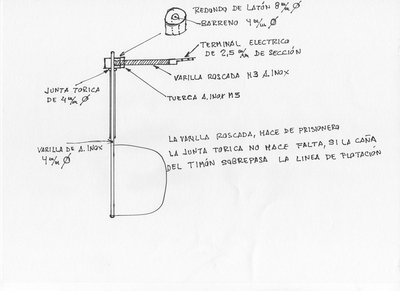 REDONDO DE LATÓN 8 m/m Ø
BARRENO 4 m/m Ø
TERMINAL ELECTRICO
DE 2,5 m/m DE SECCIÓN
VARILLA ROSCADA M3 A. INOX
JUNTA TORICA
DE 4 m/m Ø
TUERCA A. INOX M3
VARILLA DE A. INOX
4 m/m Ø
LA VARILLA ROSCADA, HACE DE PRISIONERO
LA JUNTA TORICA NO HACE FALTA, SI LA CAÑA
DEL TIMÓN SOBREPASA LA LINEA DE FLOTACIÓN